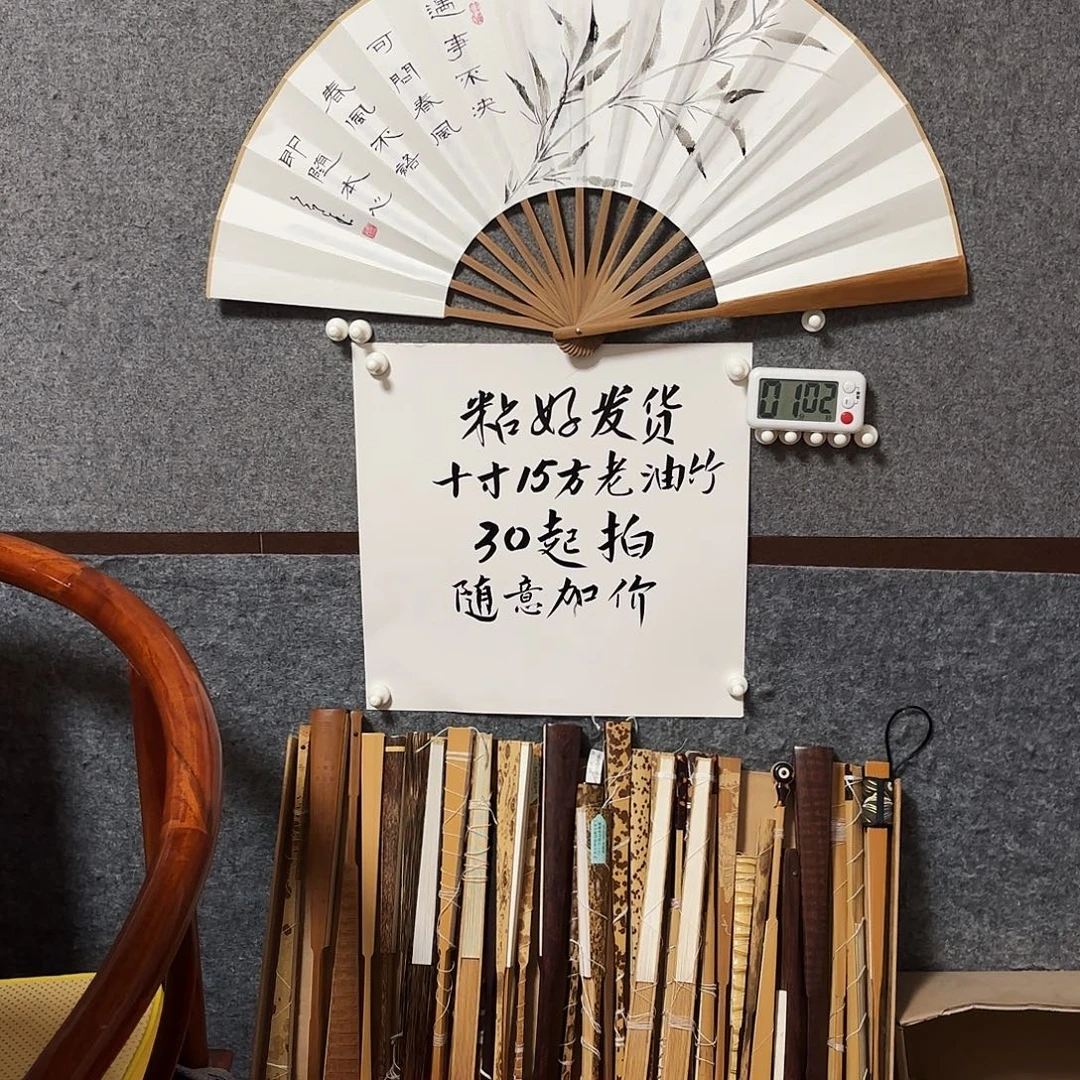 遇事不決
可問春風
春風不語
即隨本心
粘好发货
十寸15方老油竹
30起拍
随意加价
0102